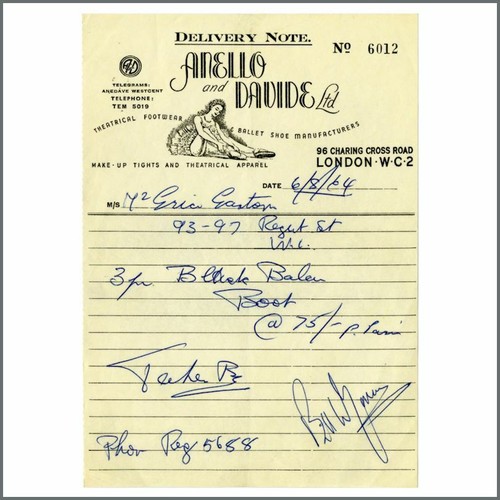 DELIVERY NOTE.
Nº 6012
TELEGRAMS:
ANEDAVE WESTCENT
TELEPHONE:
TEM 5019
ANELLO
and DAVIDE Ltd
THEATRICAL FOOTWEAR & BALLET SHOE MANUFACTURERS
MAKE-UP TIGHTS AND THEATRICAL APPAREL
96 CHARING CROSS ROAD
LONDON·W·C·2
DATE 6/8/64
M/S Mr Eric Easton
93-97 Regent St
W.1.
3 pr Black
Boot
@ 75/- p.
Taken By
Bill Wyman
Phon Reg 5688